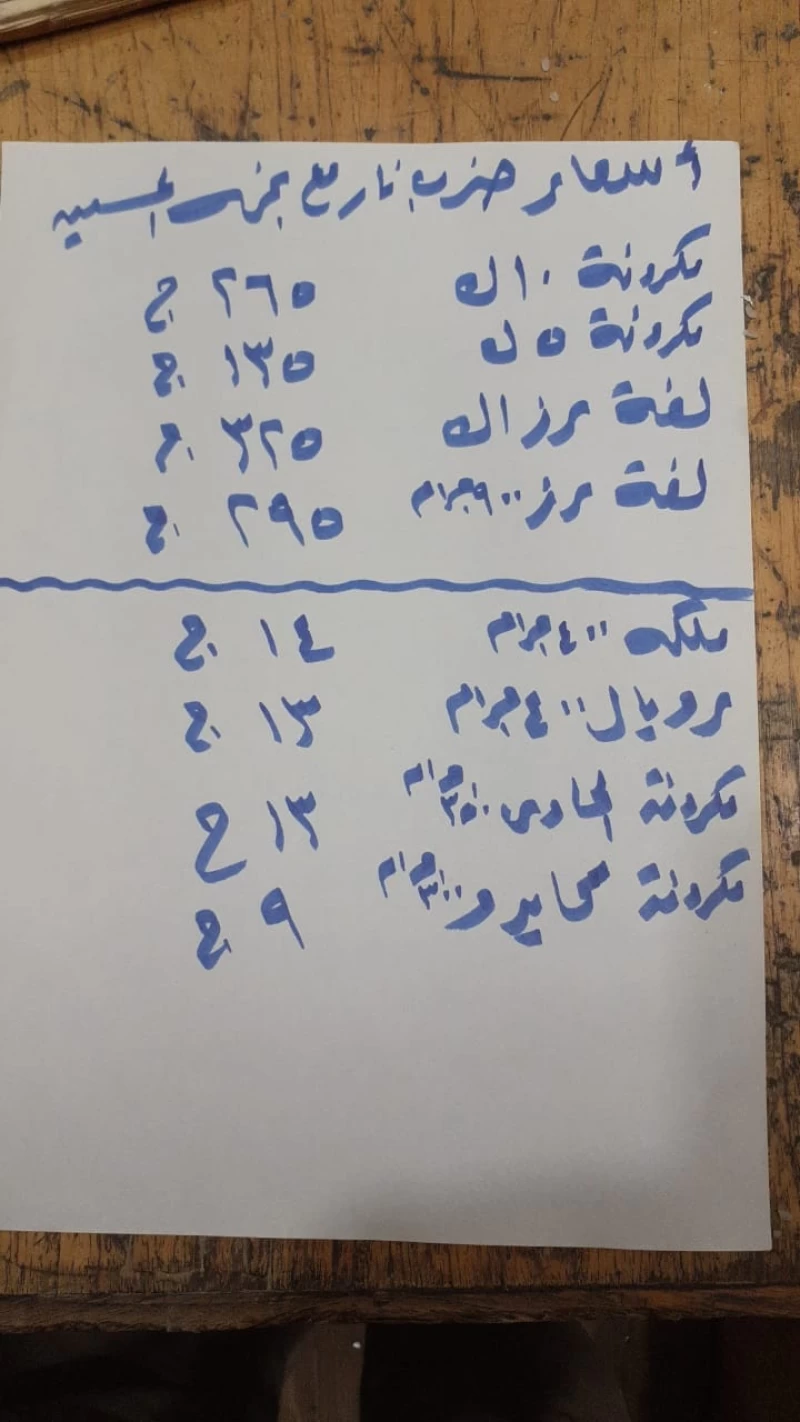 أسعار ضرب نار مع بخيت الحسيني
مكرونة ١٠ ك ٢٦٥ ج
مكرونة ٥ ك ١٣٥ ج
لفة رز ١ ك ٣٢٥ ج
لفة رز ٩٠٠ جرام ٢٩٥ ج
ملكه ٤٠٠ جرام ١٤ ج
رويال ٤٠٠ جرام ١٣ ج
مكرونة الحاوى ٣٥٠ جرام ١٣ ج
مكرونة ٣٠٠ جرام ٩ ج